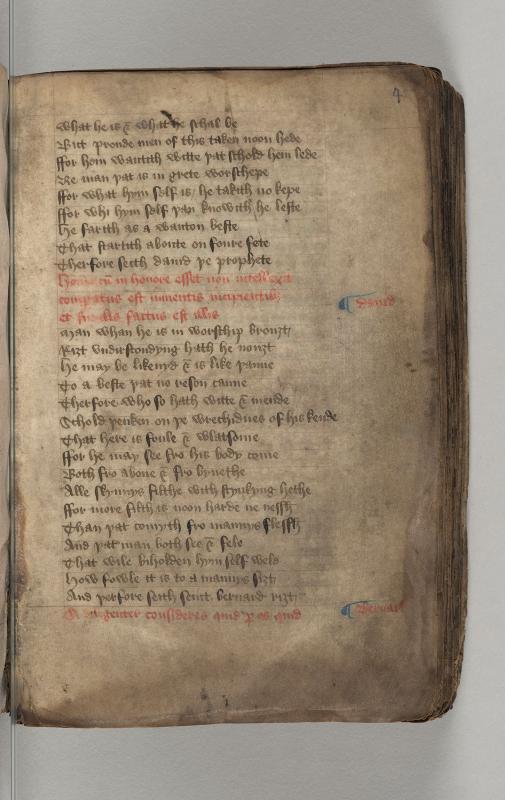 4
what he is & what he schal be
But proude men of this taken noon hede
ffor hem wantith witte þat schold hem lede
Ne man þat is in grete worschepe
ffor what hym self is / he takith no kepe
ffor whi hym self þan knowith he leste
He farith as a wanton beste
That startith aboute on foure fete
Therfore seith dauid þe prophete
Homo cū in honore esset non intellexit
comparatus est iumentis insipientibus
et similis factus est illis
dauid
Man whan he is in worschip brouȝt
Riȝt vndirstondyng hath he nouȝt
He may be likenyd & is like þanne
To a beste þat no reson canne
Therfore who so hath witte & mende
Schold þenken on þe wrechidnes of his kende
That here is foule & wlatsome
ffor he may see fro his body come
Both fro aboue & fro bynethe
Alle skynnys filthe with stynkyng hethe
ffor more filth is noon harde ne nessh
Than þat comyth fro mannys flessh
And þat man both see & fele
That wile biholden hym self wele
How fowle it is to a mannys siȝt
And þerfore seith seint bernard riȝt
Si diligenter consideres quid per os quid
Bernard